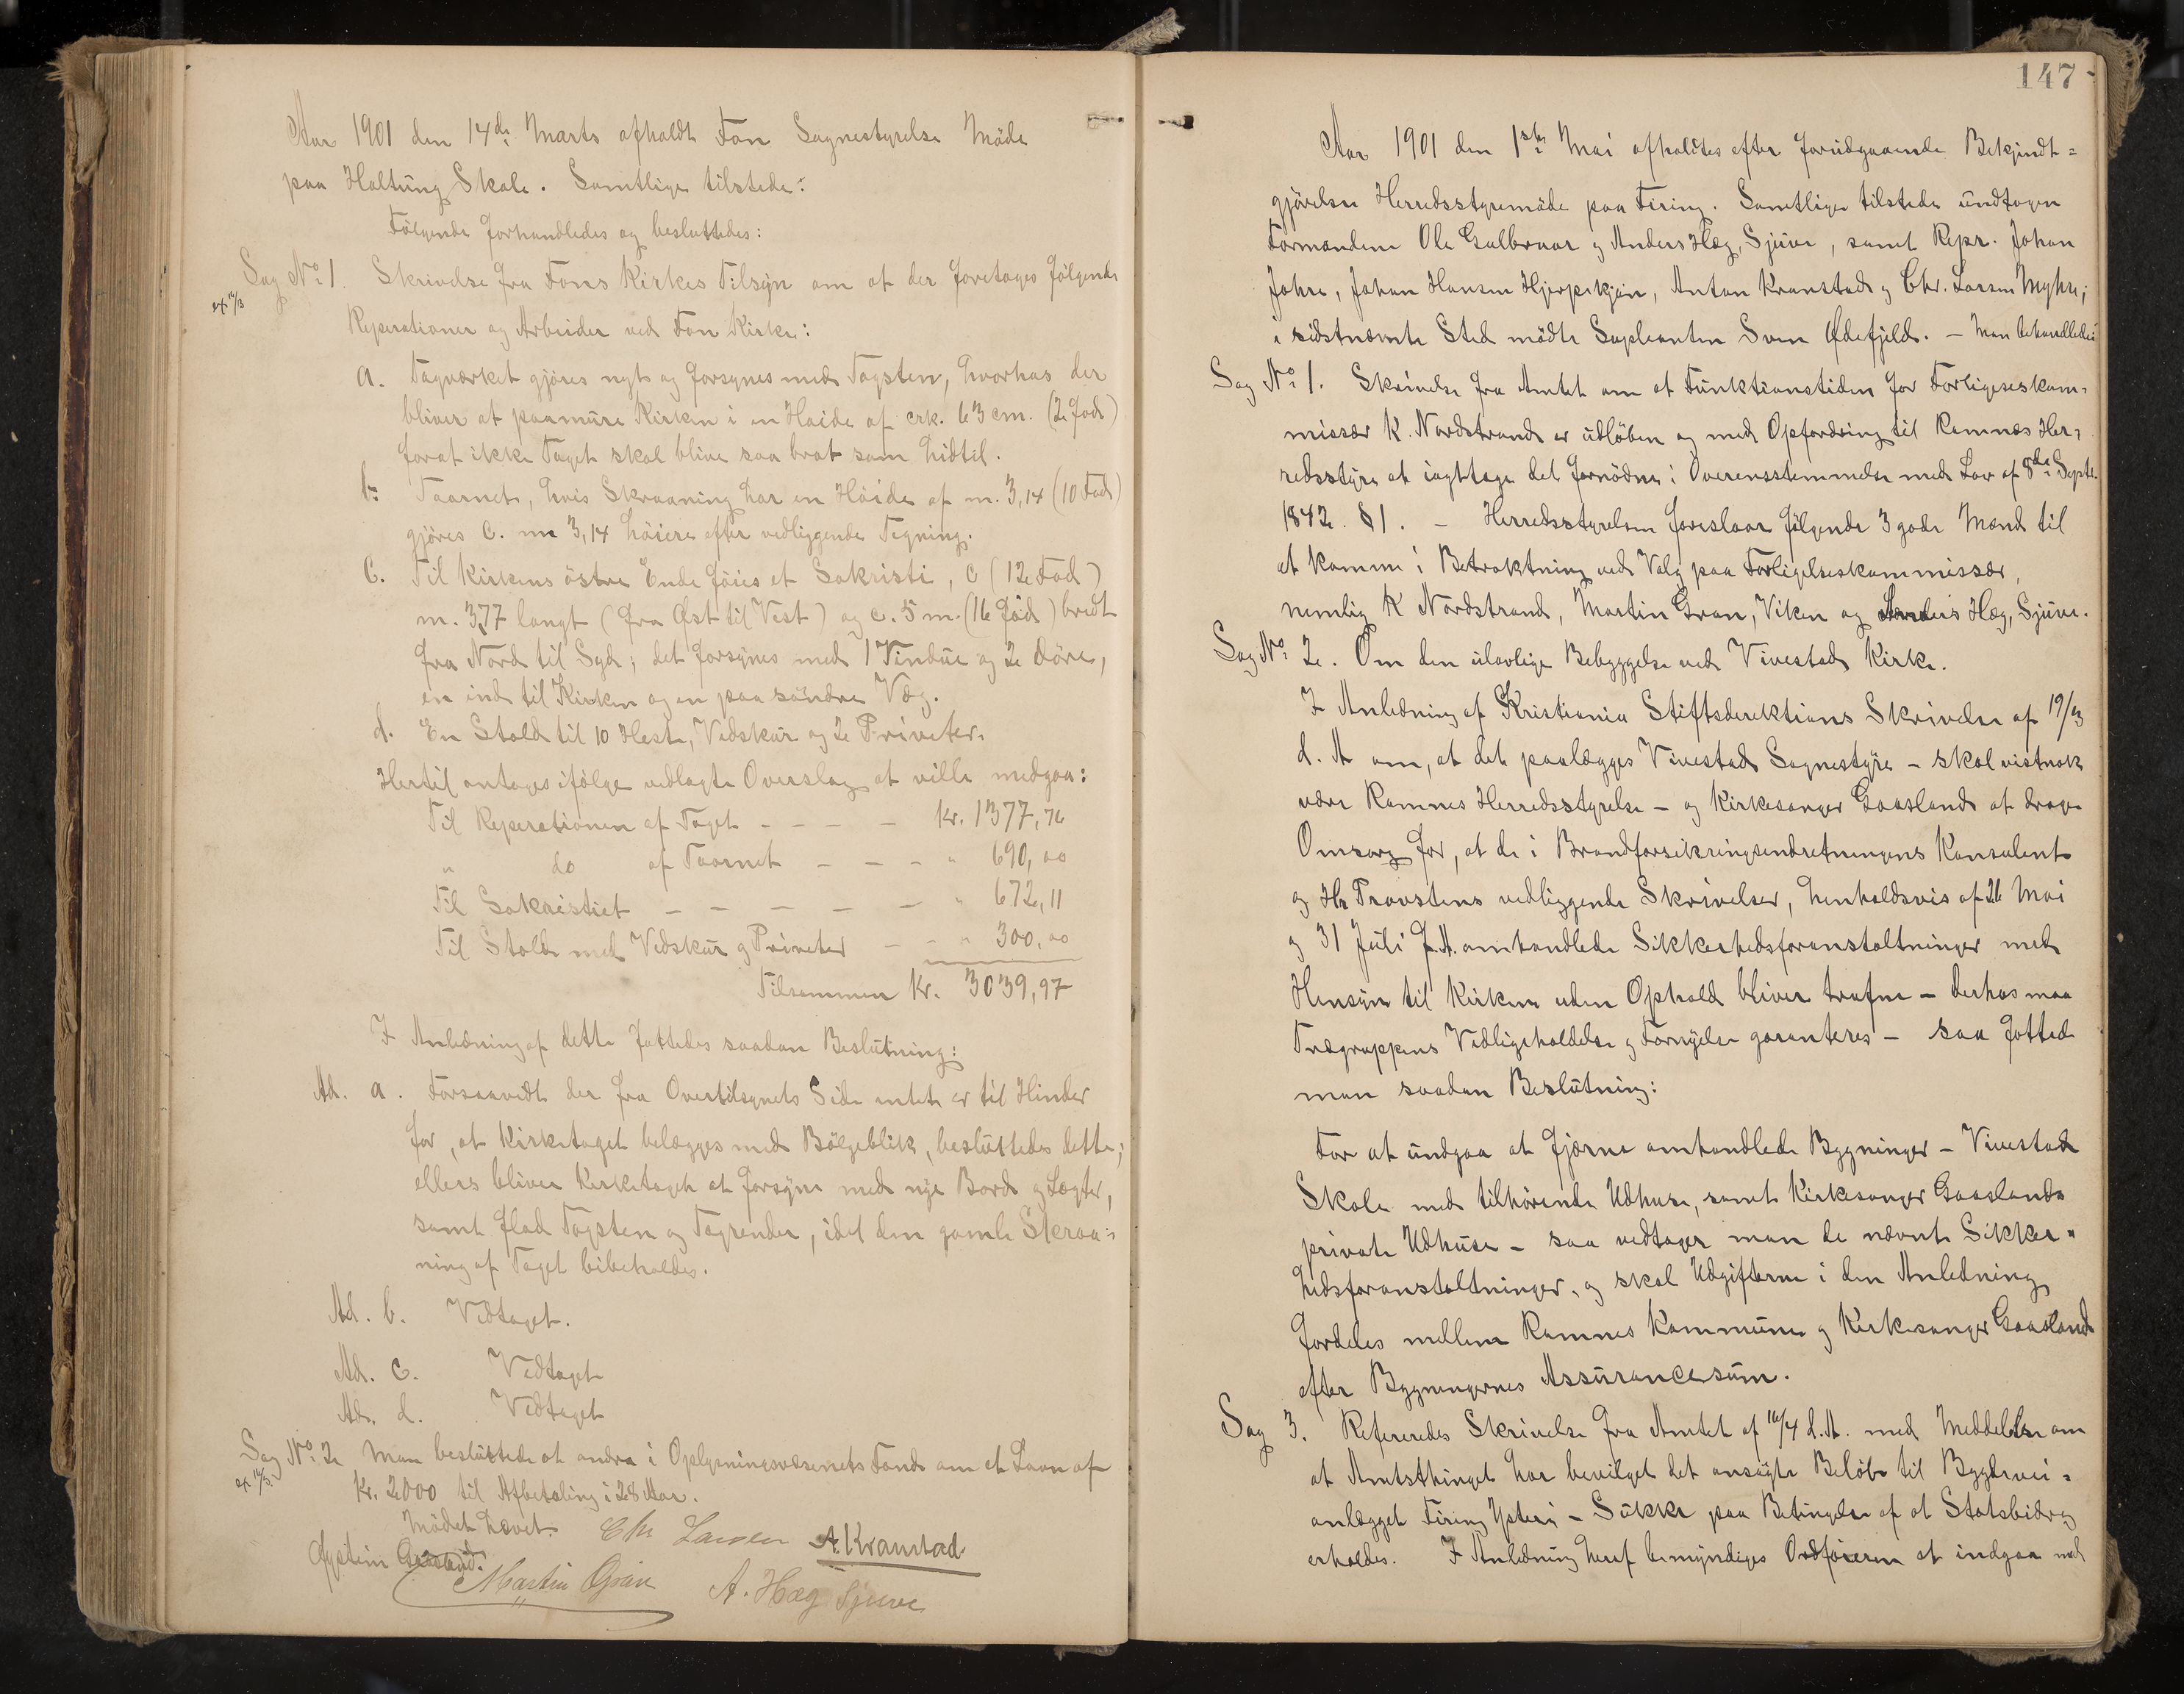 Aar 1901 den 14de Marts afholdt Fon Sognestyrelse Møde
paa Haltung Skole. Samtlige tilstede:
Følgende forhandledes og besluttedes:
Sag No 1. Skrivelse fra Fons Kirkes Tilsyn om at der foretages følgende
Reperationer og Arbeider ved Fon Kirke:
a. Tagværket gjøres nyt og forsynes med Tagsten, hvorhos der
bliver at paamure Kirken i en Høide af crk. 63 cm. (2 Fod)
forat ikke Taget skal blive saa brat som hidtil.
b. Taarnet, hvis Skraaning har en Høide af m. 3,14 (10 Fod)
gjøres c. m 3,14 høiere efter vedliggende Tegning.
c. Til Kirkens østre Ende føies et Sakristi, c (12 Fod)
m. 3,77 langt (fra Øst til Vest) og c. 5 m. (16 Fod) bredt
fra Nord til Syd; det forsynes med 1 Vindue og 2 Døre,
en ind til Kirken og en paa søndre Væg.
d. En Stald til 10 Heste, Vedskur og 2 Priveter.
Hertil antages ifølge vedlagte Overslag at ville medgaa:
Til Reperationen af Taget - - - - Kr. 1377,76
" do af Taarnet - - - " 690,00
Til Sakristiet - - - - - " 672,11
Til Stald med Vedskur og Priveter - - " 300,00
Tilsammen Kr. 3039,97
I Anledning af dette fattedes saadan Beslutning:
Ad. a. Forsaavidt der fra Overtilsynets Side intet er til Hinder
for, at Kirketaget belægges med Bølgeblik, besluttedes dette;
ellers bliver Kirketaget at forsyne med nye Bord og Lægter,
samt flad Tagsten og Tagrender, idet den gamle Skraa=
ning af Taget bibeholdes.
Ad. b. Vedtaget.
Ad. c. Vedtaget
Ad. d. Vedtaget
Sag No 2 Man besluttede at andra i Oplysningsvæsenets Fond om et Laan af
Kr. 2000 til Afbetaling i 28 Aar.
Mødet hævet. Chr Larsen A. Kranstad
Øystein Gaasland.
Martin Gran A. Hæg Sjuve
147
Aar 1901 den 1ste Mai afholdtes efter forudgaaende Bekjendt=
gjørelse Herredsstyremøde paa Firing. Samtlige tilstede undtagen
Formændene Ole Gulbraar og Anders Hæg, Sjuve, samt Repr. Johan
Johre, Johan Hansen Hjerpekjøn, Anton Kranstad og Chr. Larsen Myhre;
i sidstnævnte Sted mødte Supleanten Sven Ødefjeld. - Man behandlede:
Sag No 1. Skrivelse fra Amtet om at Funktionstiden for Forligelseskom=
missær K. Nordstrand er udløben og med Opfordring til Ramnæs Her=
redsstyre at iagttage det fornødne i Overensstemmelse med Lov af 8de Septr.
1842. § 1. - Herredsstyrelsen foreslaar følgende 3 gode Mænd til
at komme i Betraktning ved Valg paa Forligelseskommissær,
nemlig K Nordstrand, Martin Gran, Viken og Anders Hæg, Sjuve.
Sag No 2. Om den ulovlige Bebyggelse ved Vivestad Kirke.
I Anledning af Kristiania Stiftsdirektions Skrivelse af 19/3
d. A om, at det paalægges Vivestad Sognestyre - skal vistnok
være Ramnes Herredsstyrelse - og Kirkesanger Gaasland at drage
Omsorg for, at de i Brandforsikringsindretningens Konsulents
og Hr Provstens vedliggende Skrivelser, henholdsvis af 26 Mai
og 31 Juli f.A. omhandlede Sikkerhedsforanstaltninger med
Hensyn til Kirken uden Ophold bliver trufne - derhos maa
Trægruppens Vedligeholdelse og Fornyelse garanteres - saa fatted
man saadan Beslutning:
For at undgaa at fjærne omhandlede Bygninger - Vivestad
Skole med tilhørende Udhuse, samt Kirkesanger Gaaslands
private Udhuse - saa vedtager man de nævnte Sikker=
hedsforanstaltninger, og skal Udgifterne i den Anledning
fordeles mellem Ramnes Kommune og Kirkesanger Gaasland
efter Bygningernes Assurancesum.
Sag 3. Refereredes Skrivelse fra Amtet af 16/4 d.A. med Meddelelse om
at Amtsthinget har bevilget det ansøgte Beløb til Bygdevei=
anlægget Firing Ysteri - Sukke paa Betingelse af at Statsbidrag
erholdes. I Anledning heraf bemyndiges Ordføreren at indgaa med